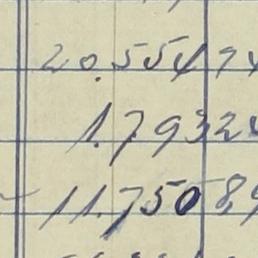 20.55474
1.79324
11.75089